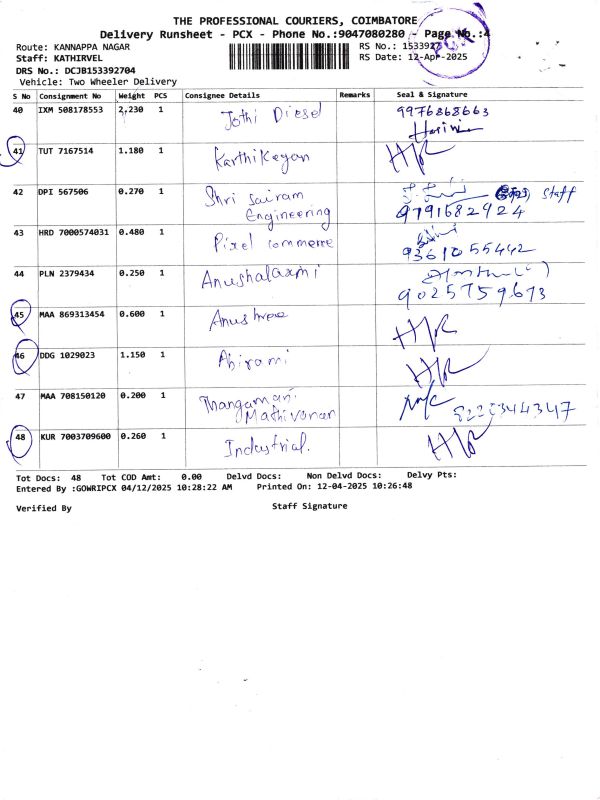 THE PROFESSIONAL COURIERS, COIMBATORE
Delivery Runsheet - PCX - Phone No.:9047080280 - Page No.:4
Route: KANNAPPA NAGAR
RS No.: 1533927
Staff: KATHIRVEL
RS Date: 12-Apr-2025
DRS No.: DCJB153392704
Vehicle: Two Wheeler Delivery
PCX
S No Consignment No Weight PCS Consignee Details Remarks Seal & Signature
40 IXM 508178553 2,230 1 Jothi Diesel 9976868663
41 TUT 7167514 1.180 1 Karthikeyan
42 DPI 567506 0.270 1 Shri Sairam Staff
Engineering 9791682924
43 HRD 7000574031 0.480 1 Pixel commerce 9361055442
44 PLN 2379434 0.250 1 Anushalaxmi
9025759673
45 MAA 869313454 0.600 1 Anushree
46 DDG 1029023 1.150 1 Abirami
47 MAA 708150120 0.200 1 Thangamani
Mathivanan
48 KUR 7003709600 0.260 1 Industrial.
Tot Docs: 48 Tot COD Amt: 0.00 Delvd Docs: Non Delvd Docs: Delvy Pts:
Entered By :GOWRIPCX 04/12/2025 10:28:22 AM Printed On: 12-04-2025 10:26:48
Verified By Staff Signature